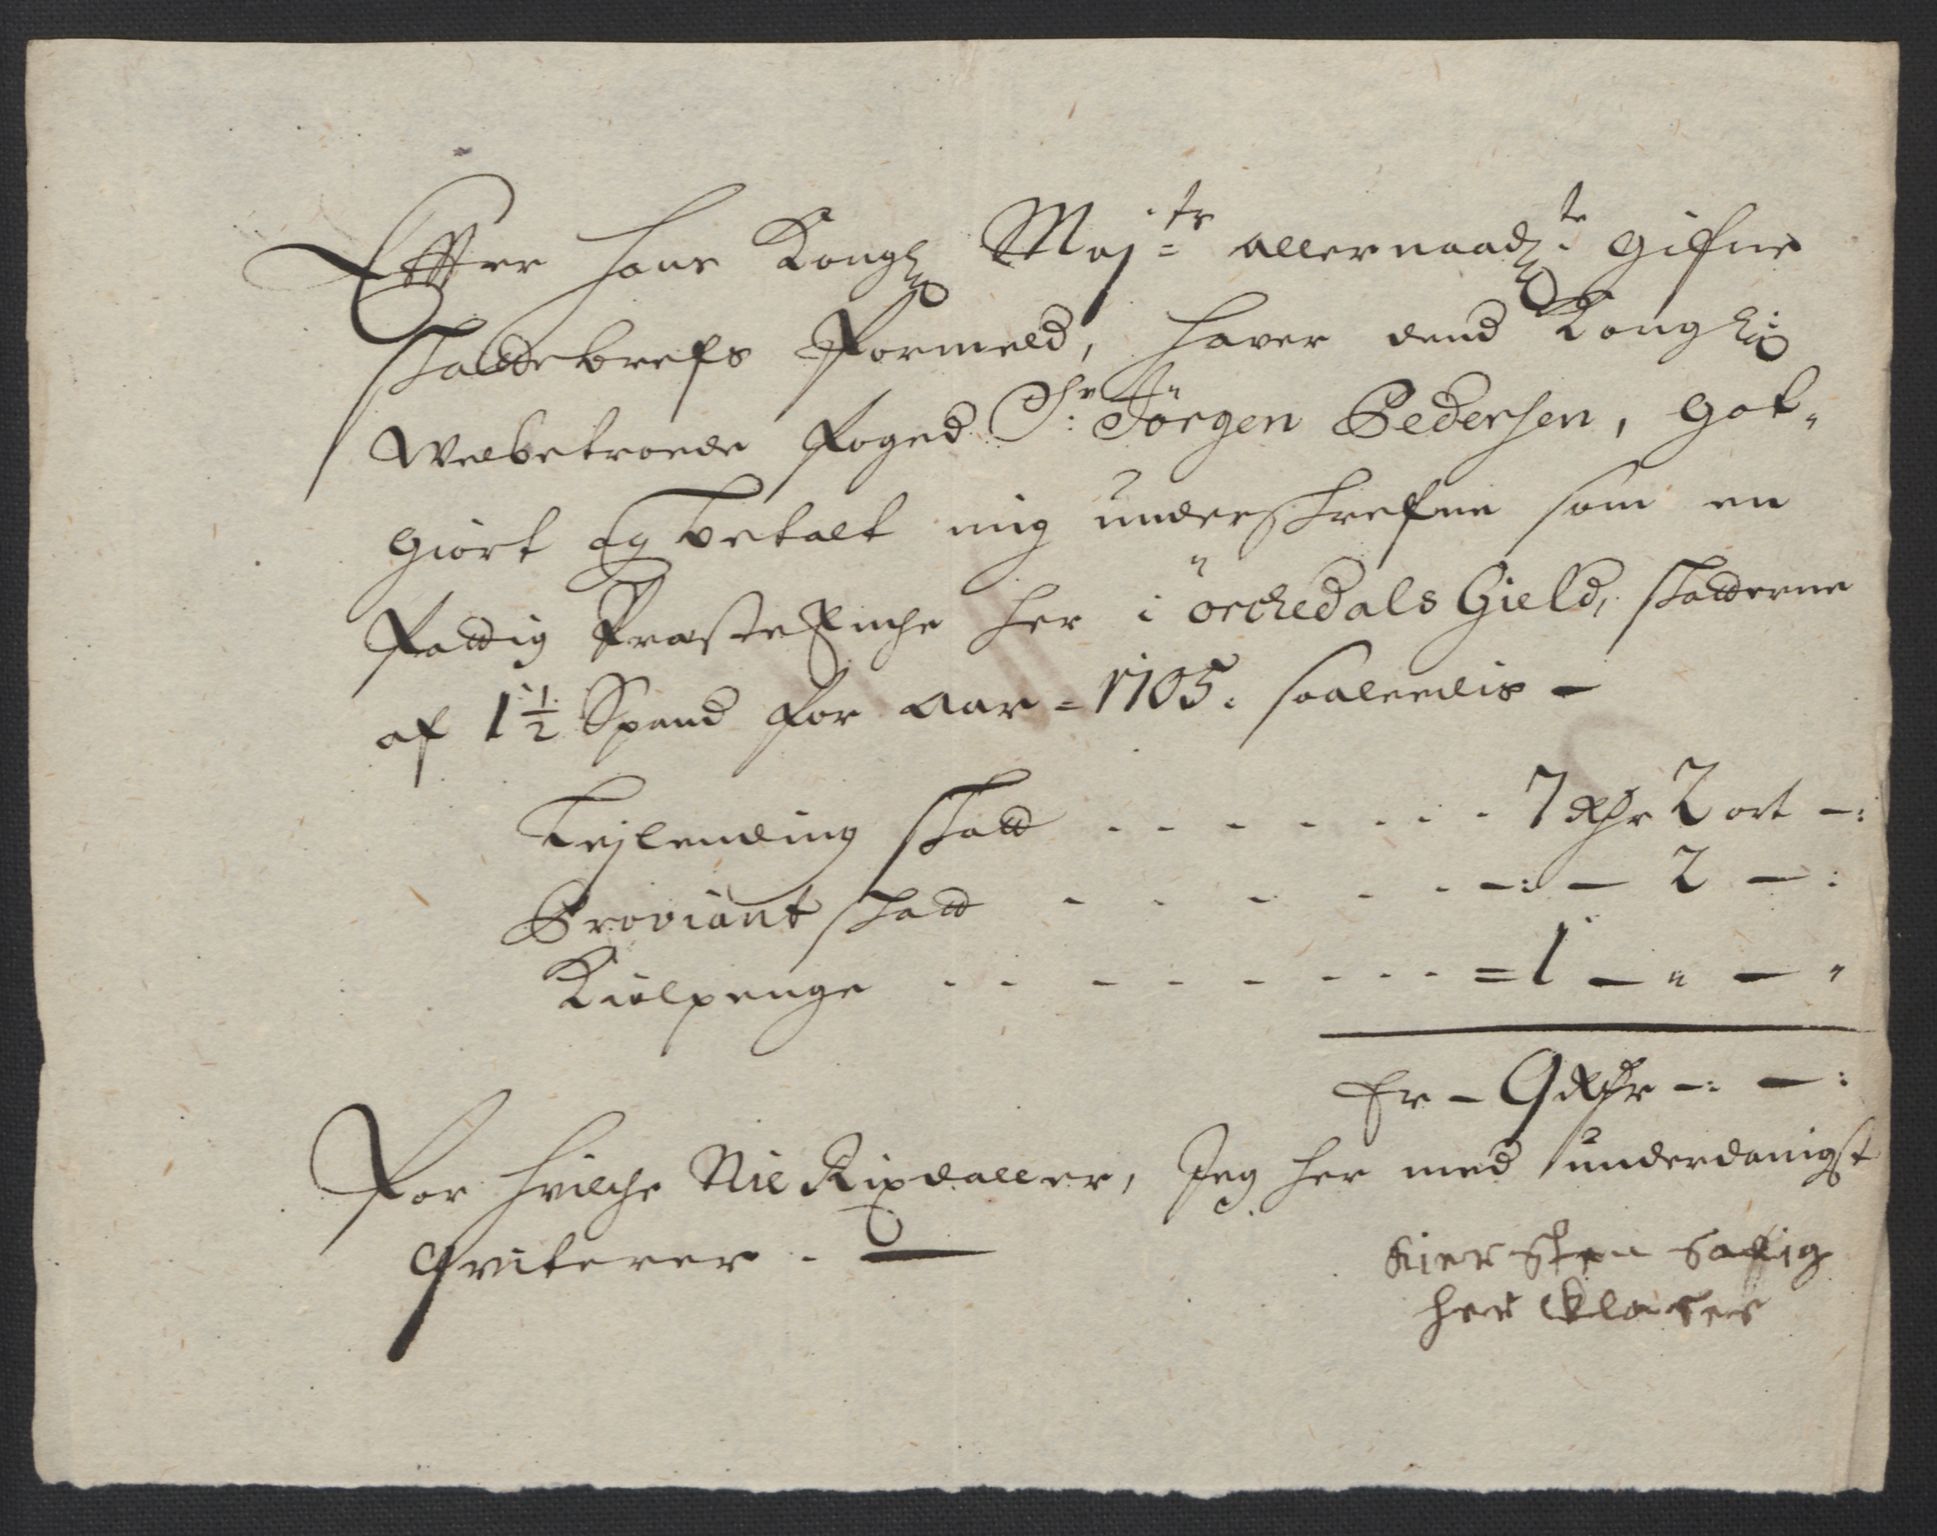 Effter Hans Kongl Maj:tz allernaad:te Gifne
skattebrefs Formeld, hafver dend Kongl:
Welbetroede Foged Sr: Jörgen Pedersen, Got-
giort og betalt mig underskrefne som en
Fattig Præste Enche her i Örckedals Gield, skatterne
af 1½ Spand for Aar = 1705. saaledis —
Lejlending skatt . . . . . . . 7 Rdr 2 ort —:
Proviant skatt . . . . . —:— 2 —:
Kiølpenge . . . . . . . . =1 — " — "
Er — 9 Rdr —: —:
For hvilche Nie Rixdaller, Jeg her med underdanigst
Qviterer. —
Kiersten Salig
her Clases